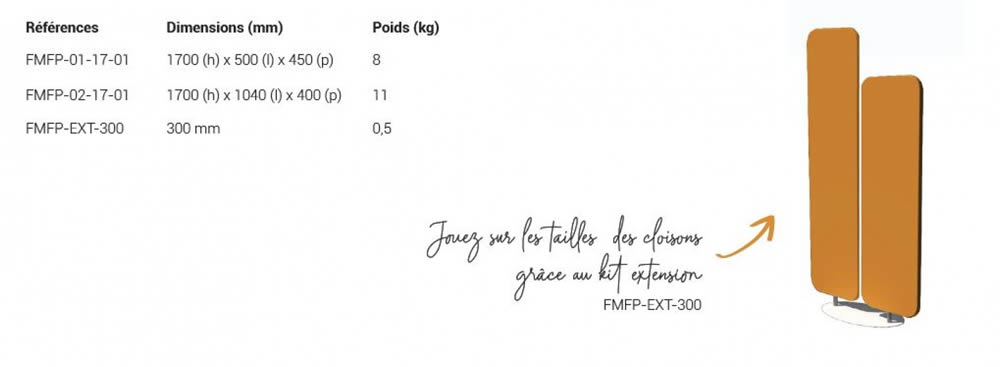 Références Dimensions (mm) Poids (kg)
FMFP-01-17-01 1700 (h) x 500 (l) x 450 (p) 8
FMFP-02-17-01 1700 (h) x 1040 (l) x 400 (p) 11
FMFP-EXT-300 300 mm 0,5
Jouez sur les tailles des cloisons
grâce au kit extension
FMFP-EXT-300